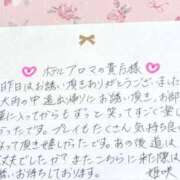 ホテルアロマの貴兵様
昨日はお誘い頂きありがとうございました
大雨の中遠出帰りにお誘い頂き、お部
屋に入ってからもずっと笑ってすごく楽し
かったです。プレイもたくさん気持ち良く
って頂き嬉しかったです。あの後道
丈夫でしたか?またこちらに来た際は
お待ちしております。
姫咲